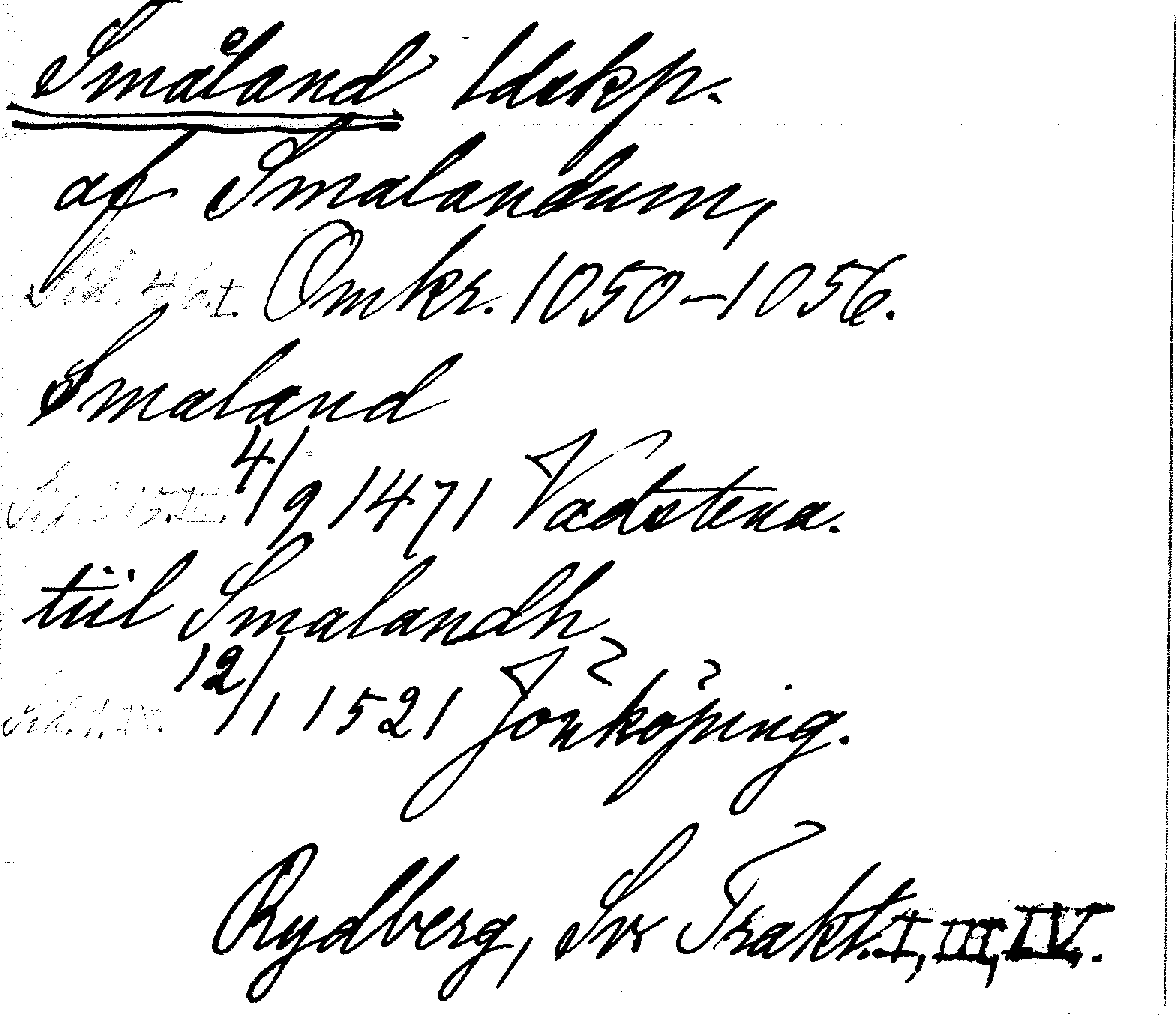 Småland ldskp.
af Smalandum,
Sid. 46. I Omkr. 1050-1056.
Smaland
4/9 1471 Vadstena.
tiil Smalandh
12/1 1521 Jönköping.
Rydberg, Sv. Trakt. I, III, IV.